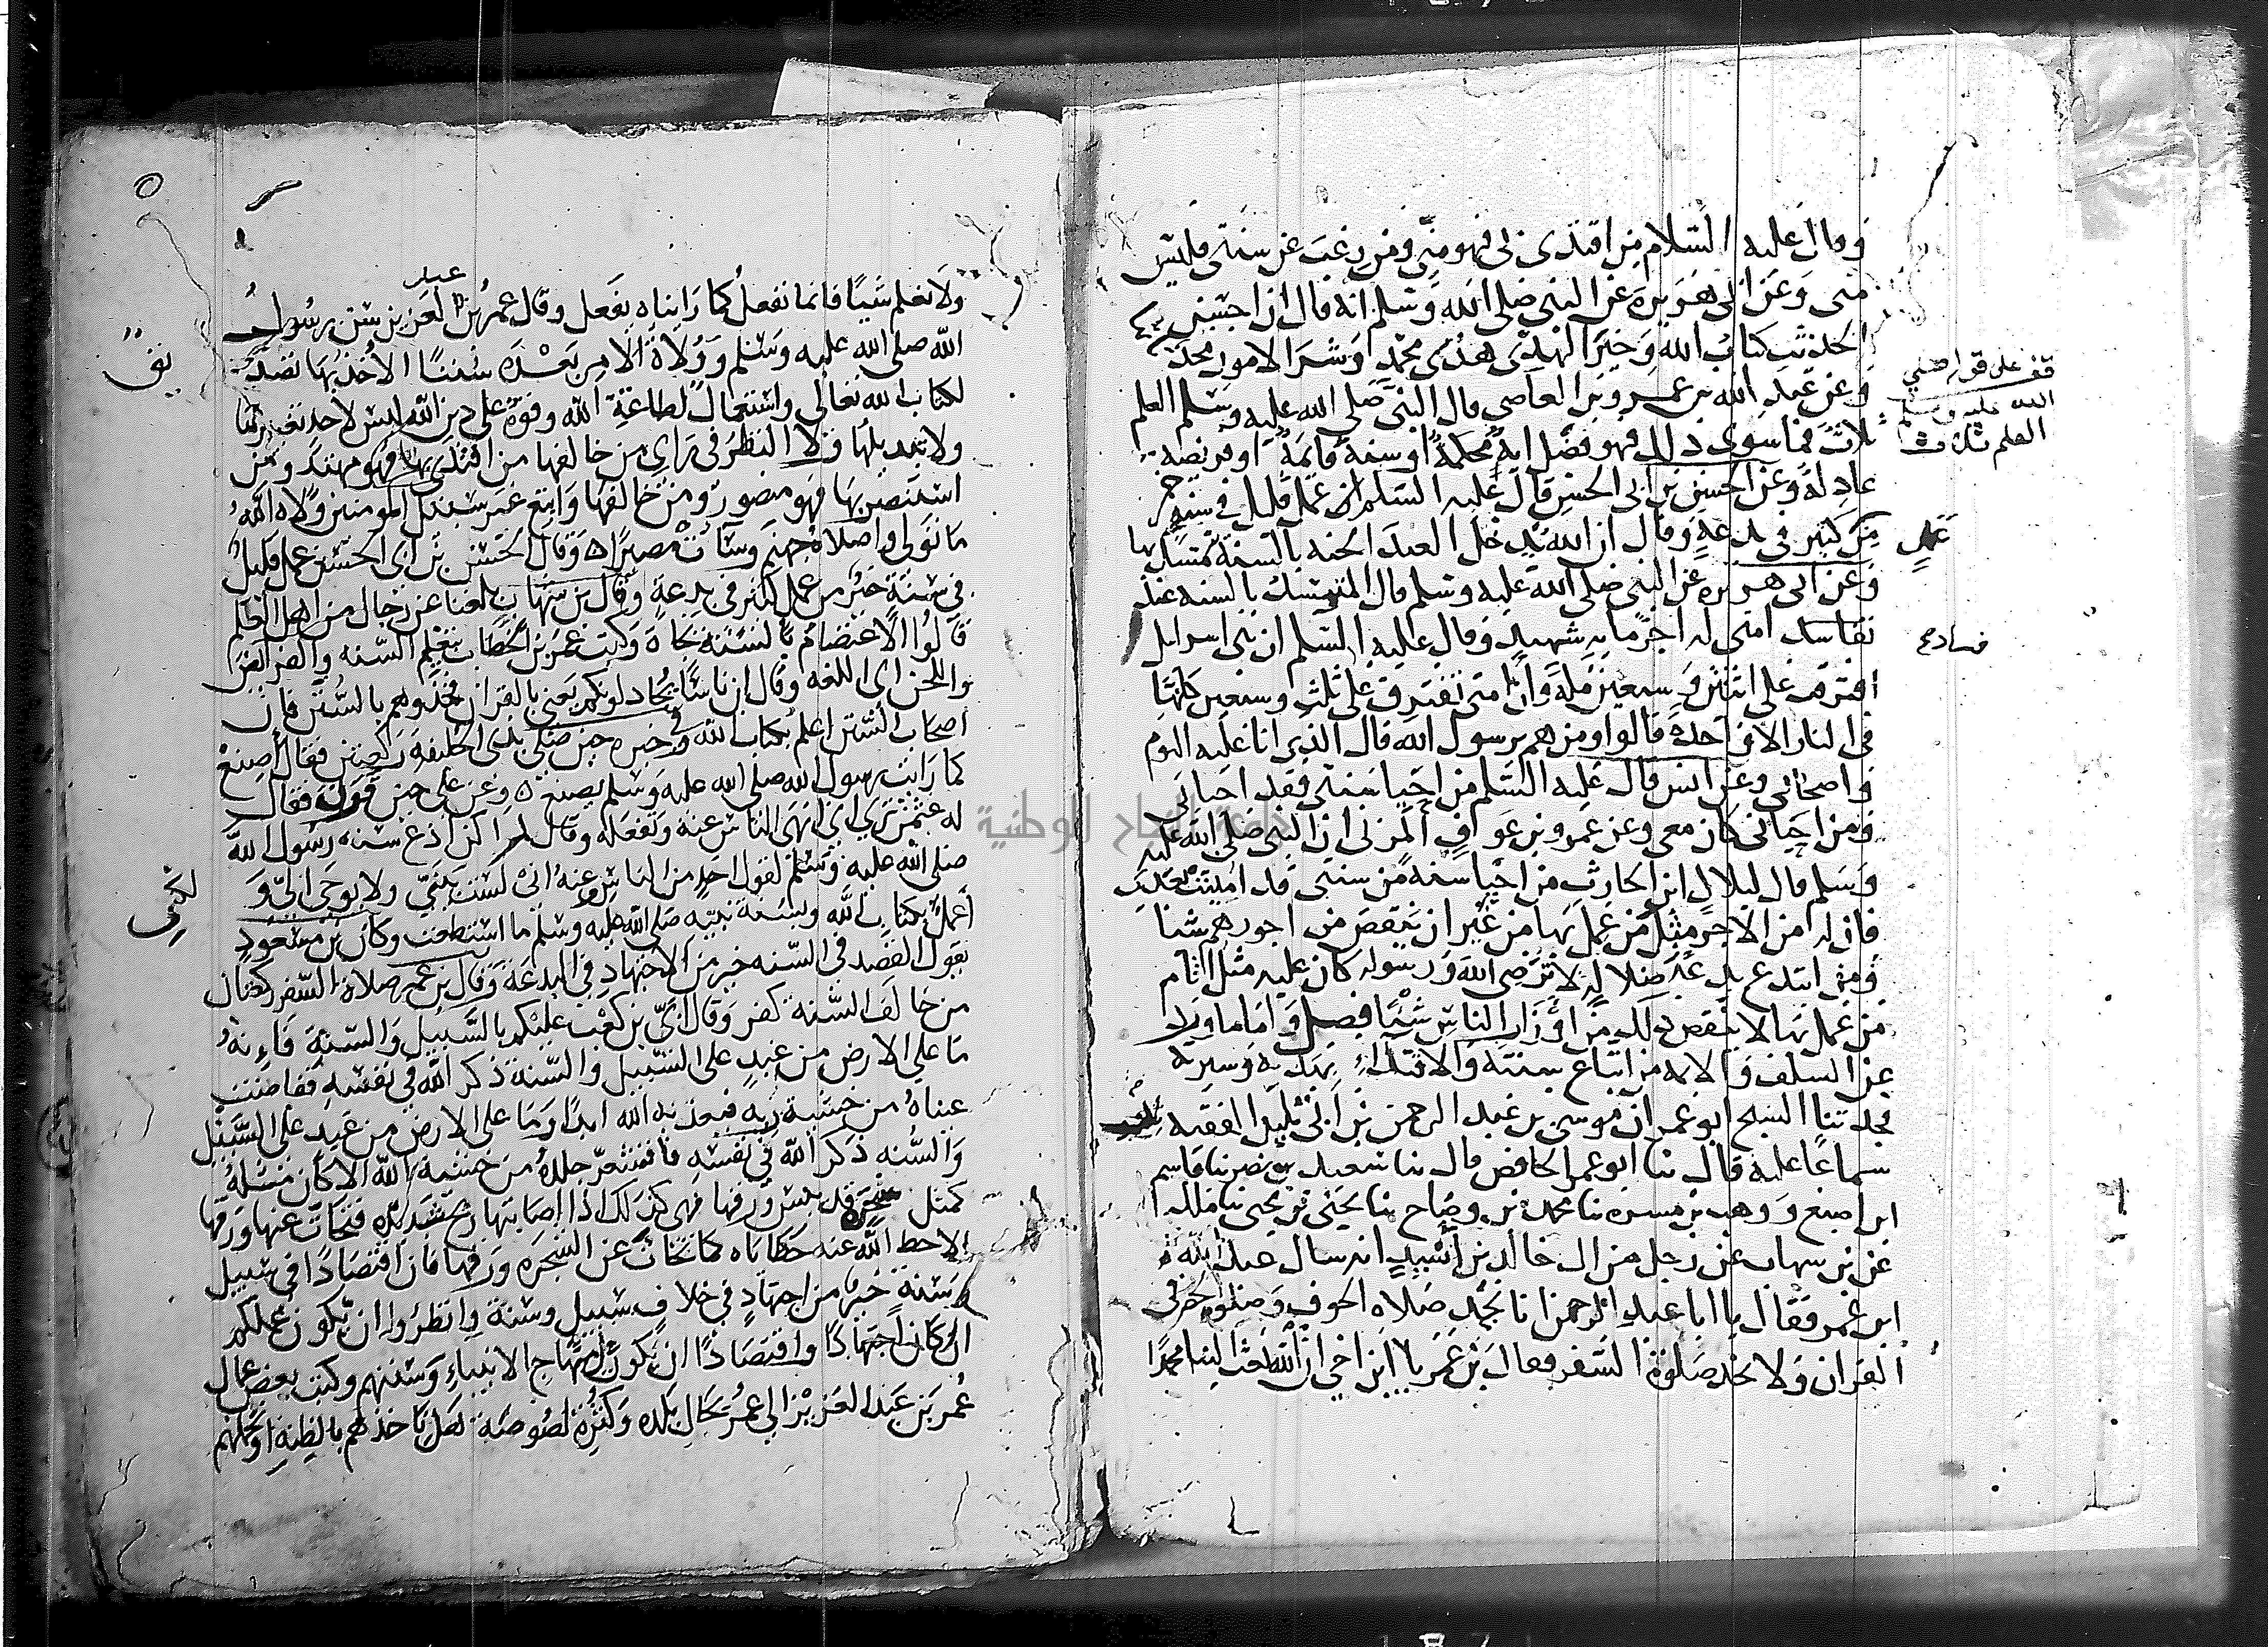 وقال عليه السلام من اقتدى بي فهو مني ومن رغب عن سنتي فليس
مني وعن ابي هريرة عن النبي صلى الله وسلم انه قال ان احسن
الحديث كتاب الله وخير الهدى هدى محمد وشر الامور محد
وعن عبد الله بن عمرو بن العاصي قال النبي صلى الله عليه وسلم العلم
ثلاث فما سوى ذلك فهو فضل اية محكمة او سنة قايمة او فريضة
عادلة وعن الحسن بن ابي الحسن قال عليه السلم عمل قليل في سنة خير
من كثير في بدعة وقال ان الله يدخل العبد الجنة بالسنة تمسك بها
وعن ابي هريرة عن النبي صلى الله عليه وسلم قال المتمسك بالسنة عند
امتي له اجر ماية شهيد وقال عليه السلم ان بني اسرايل
افترقت على اثنين وسبعين ملة وان امتي تفترق على ثلث وسبعين كلها
في النار الا واحدة قالوا ومن هم يرسول الله قال الذي انا عليه اليوم
واصحابي وعن انس قال عليه السلم من احيا سنتي فقد احياني
ومن احياني كان معي وعن عمرو بن عوف المزني ان النبي صلى الله عليه
وسلم قال لبلال ابن الحارث من احيا سنة من سنتي قد اميتت بعدي
فان له من الاجر مثل من عمل بها من غير ان ينقص من اجورهم شيا
ومن ابتدع بدعة ضلالة لا ترضي الله ورسوله كان عليه مثل اثام
من عمل بها لا ينقص ذلك من اوزار الناس شيا فصل واما ما ورد
عن السلف والايمة من اتباع سنته والاقتداء بهديه وسيرته
فحدثنا الشيخ ابو عمران موسى بن عبد الرحمن بن ابي تليد الفقيه
سماعا عليه قال ثنا ابو عمر الحافظ قال ثنا سعيد بن نصر ثنا قاسم
ابن اصبغ ووهب بن مسرة ثنا محمد بن وضاح ثنا يحيى بن يحيى ثنا ملك
عن بن شهاب عن رجل من ال خالد بن أسيد انه سال عبد الله
ابن عمر فقال يا ابا عبد الرحمن انا نجد صلاة الخوف وصلوة الحضر في
القران ولا نجد صلوة السفر فقال بن عمر يا ابن اخي ان الله بعث الينا محمدا
قف على قوله صلى
الله عليه وسلم
العلم ثلاث
عمل
فساد
ولا نعلم شيا فانما نفعل كما رايناه يفعل وقال عمر بن عبد العزيز سن رسول
الله صلى الله عليه وسلم وولاة الامر بعده سننا الاخذ بها تصديق
لكتاب الله تعالى واستعمال لطاعة الله وقوة على دين الله ليس لاحد تغييرها
ولا تبديلها ولا النظر في راي من خالفها من اقتدى بها فهو مهتد ومن
استنصر بها فهو منصور ومن خالفها واتبع غير سبيل المومنين ولاه الله
ما تولى واصلاه جهنم وساءت مصيرا وقال الحسن بن ابي الحسن عمل قليل
في سنة خير من عمل كثير في بدعة وقال بن شهاب بلغنا عن رجال من اهل العلم
قالوا الاعتصام بالسنة نجاة وكتب عمر بن الخطاب بتعلم السنة والفرائض
واللحن اي اللغة وقال ان ناسا يجادلونكم يعني بالقران فخذوهم بالسنن فان
اصحاب السنن اعلم بكتاب الله وفي خبره حين صلى بذي الحليفة ركعتين فقال اصنع
كما رايت رسول الله صلى الله عليه وسلم يصنع وعن علي حين قرن فقال
له عثمن ترى اني انهى الناس عنه وتفعله وقال لم اكن ادع سنة رسول الله
صلى الله عليه وسلم لقول احد من الناس وعنه اني لست بنبي ولا يوحى الي و
اعمل بكتاب الله وبسنة نبيه صلى الله عليه وسلم ما استطعت وكان بن مسعود
يقول القصد في السنة خير من الاجتهاد في البدعة وقال بن عمر صلاة السفر ركعتان
من خالف السنة كفر وقال ابي بن كعب عليكم بالسبيل والسنة فانه
ما على الارض من عبد على السبيل والسنة ذكر الله في نفسه ففاضت
عيناه من خشية ربه فيعذبه الله ابدا وما على الارض من عبد على السبيل
والسنه ذكر الله في نفسه فاقشعر جلده من خشية الله الا كان مثله
كمثل شجرة قد يبس ورقها فهي كذلك اذا اصابتها ريح شديدة فتحات عنها ورقها
الا حط الله عنه خطاياه كما تحات عن الشجرة ورقها فان اقتصادا في سبيل
وسنة خير من اجتهاد في خلاف سبيل وسنة وانظروا ان يكون عملكم
ان كان اجتهادا واقتصادا ان يكون منهاج الانبياء وسنتهم وكتب بعض عمال
عمر بن عبد العزيز الى عمر بحال بلده وكثرة لصوصه هل ياخذهم بالظنة او يحملهم
لكني
جامعة النجاح الوطنية